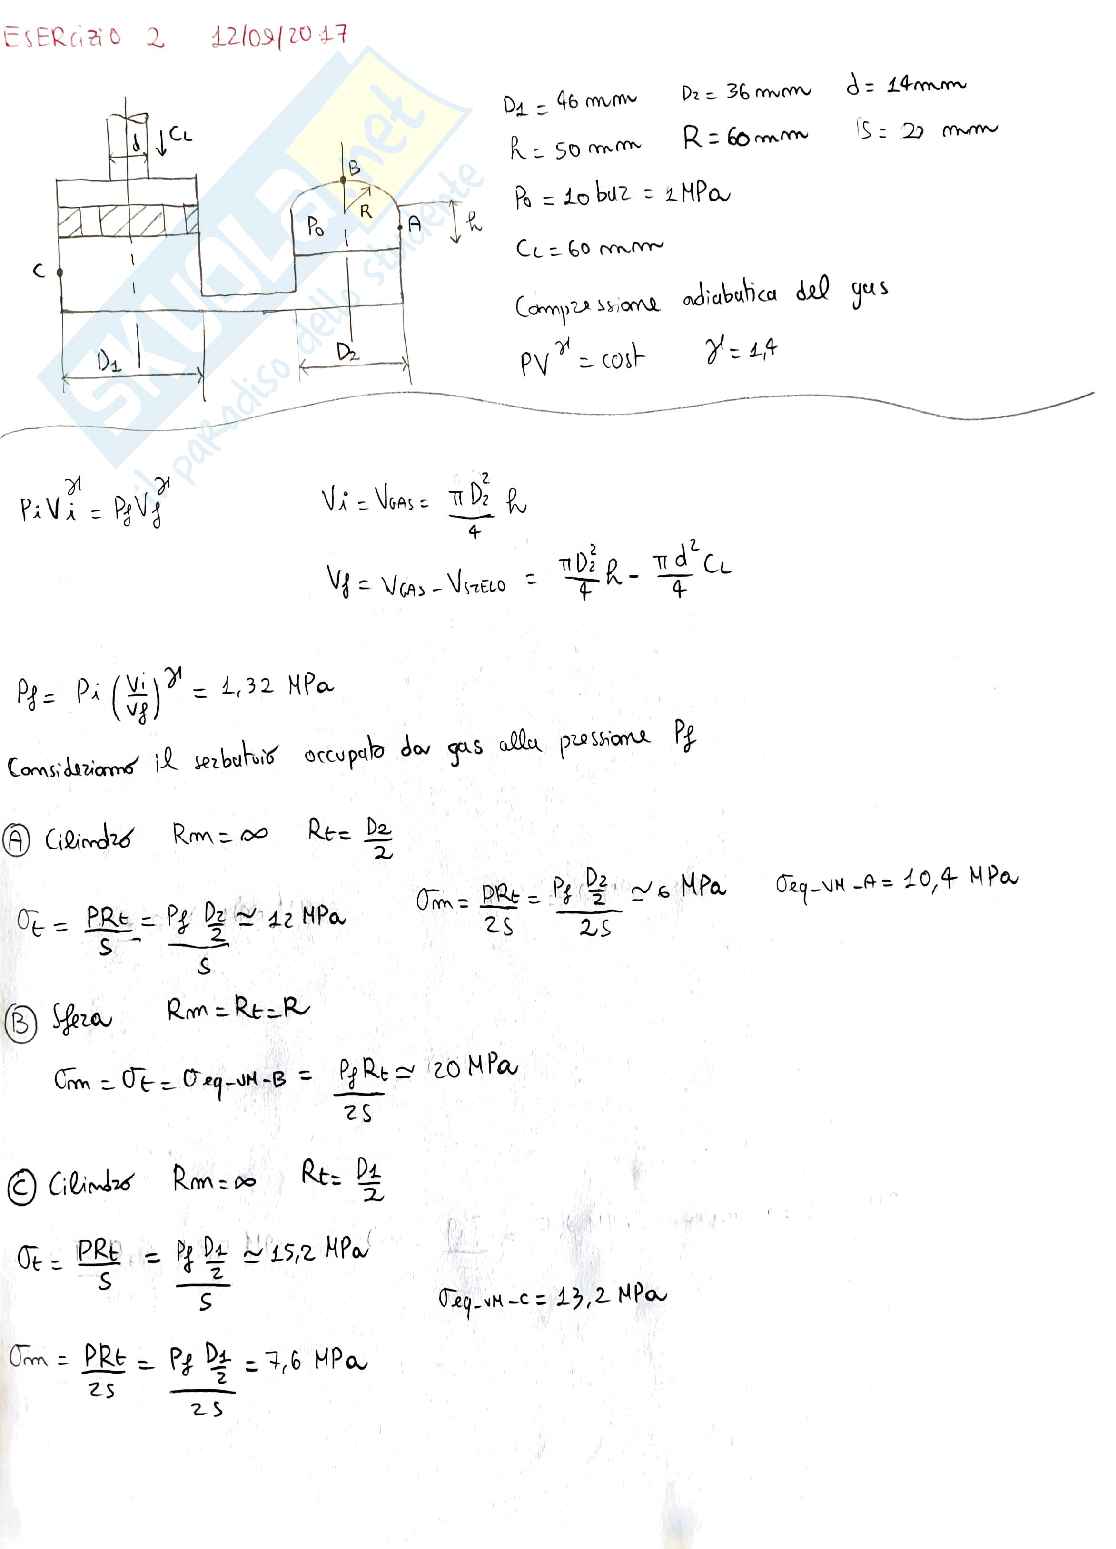 ESERCIZIO 2 12/09/2017
D1 = 46 mm D2 = 36 mm d = 14 mm
h = 50 mm R = 60 mm S = 2 mm
P0 = 10 bar = 1 MPa
CL = 60 mm
Compressione adiabatica del gas
PV^γ = cost γ = 1,4
d CL
B
R
P0 A h
C
D1 D2
SKUOLA.net
il paradiso dello studente
PiVi^γ = PfVf^γ Vi = VGAS = πD2²/4 h
Vf = VGAS - VSTELO = πD2²/4 h - πd²/4 CL
Pf = Pi (Vi/Vf)^γ = 1,32 MPa
Consideriamo il serbatoio occupato da gas alla pressione Pf
A Cilindro Rm = ∞ Rt = D2/2
σt = PRt/S = Pf D2/2 / S ≃ 12 MPa σm = PRt/2S = Pf D2/2 / 2S ≃ 6 MPa σeq-VM-A = 10,4 MPa
B Sfera Rm = Rt = R
σm = σt = σeq-VM-B = PfRt/2S ≃ 20 MPa
C Cilindro Rm = ∞ Rt = D1/2
σt = PRt/S = Pf D1/2 / S ≃ 15,2 MPa
σeq-VM-C = 13,2 MPa
σm = PRt/2S = Pf D1/2 / 2S = 7,6 MPa